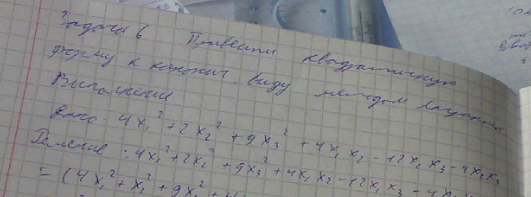 Задача 6 Привести квадратичную
форму к канонич. виду методом Лагранжа
Выполнение
Дано: 4x₁² + 2x₂² + 9x₃² + 4x₁x₂ - 12x₁x₃ - 4x₂x₃
Решение: 4x₁² + 2x₂² + 9x₃² + 4x₁x₂ - 12x₁x₃ - 4x
= (4x₁² + x₂² + 9x₃²